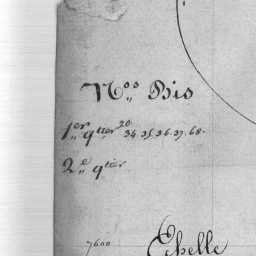 Nos Bis
1er qtier 20 34. 35. 36. 37. 68.
2e qtier
7600
Echelle